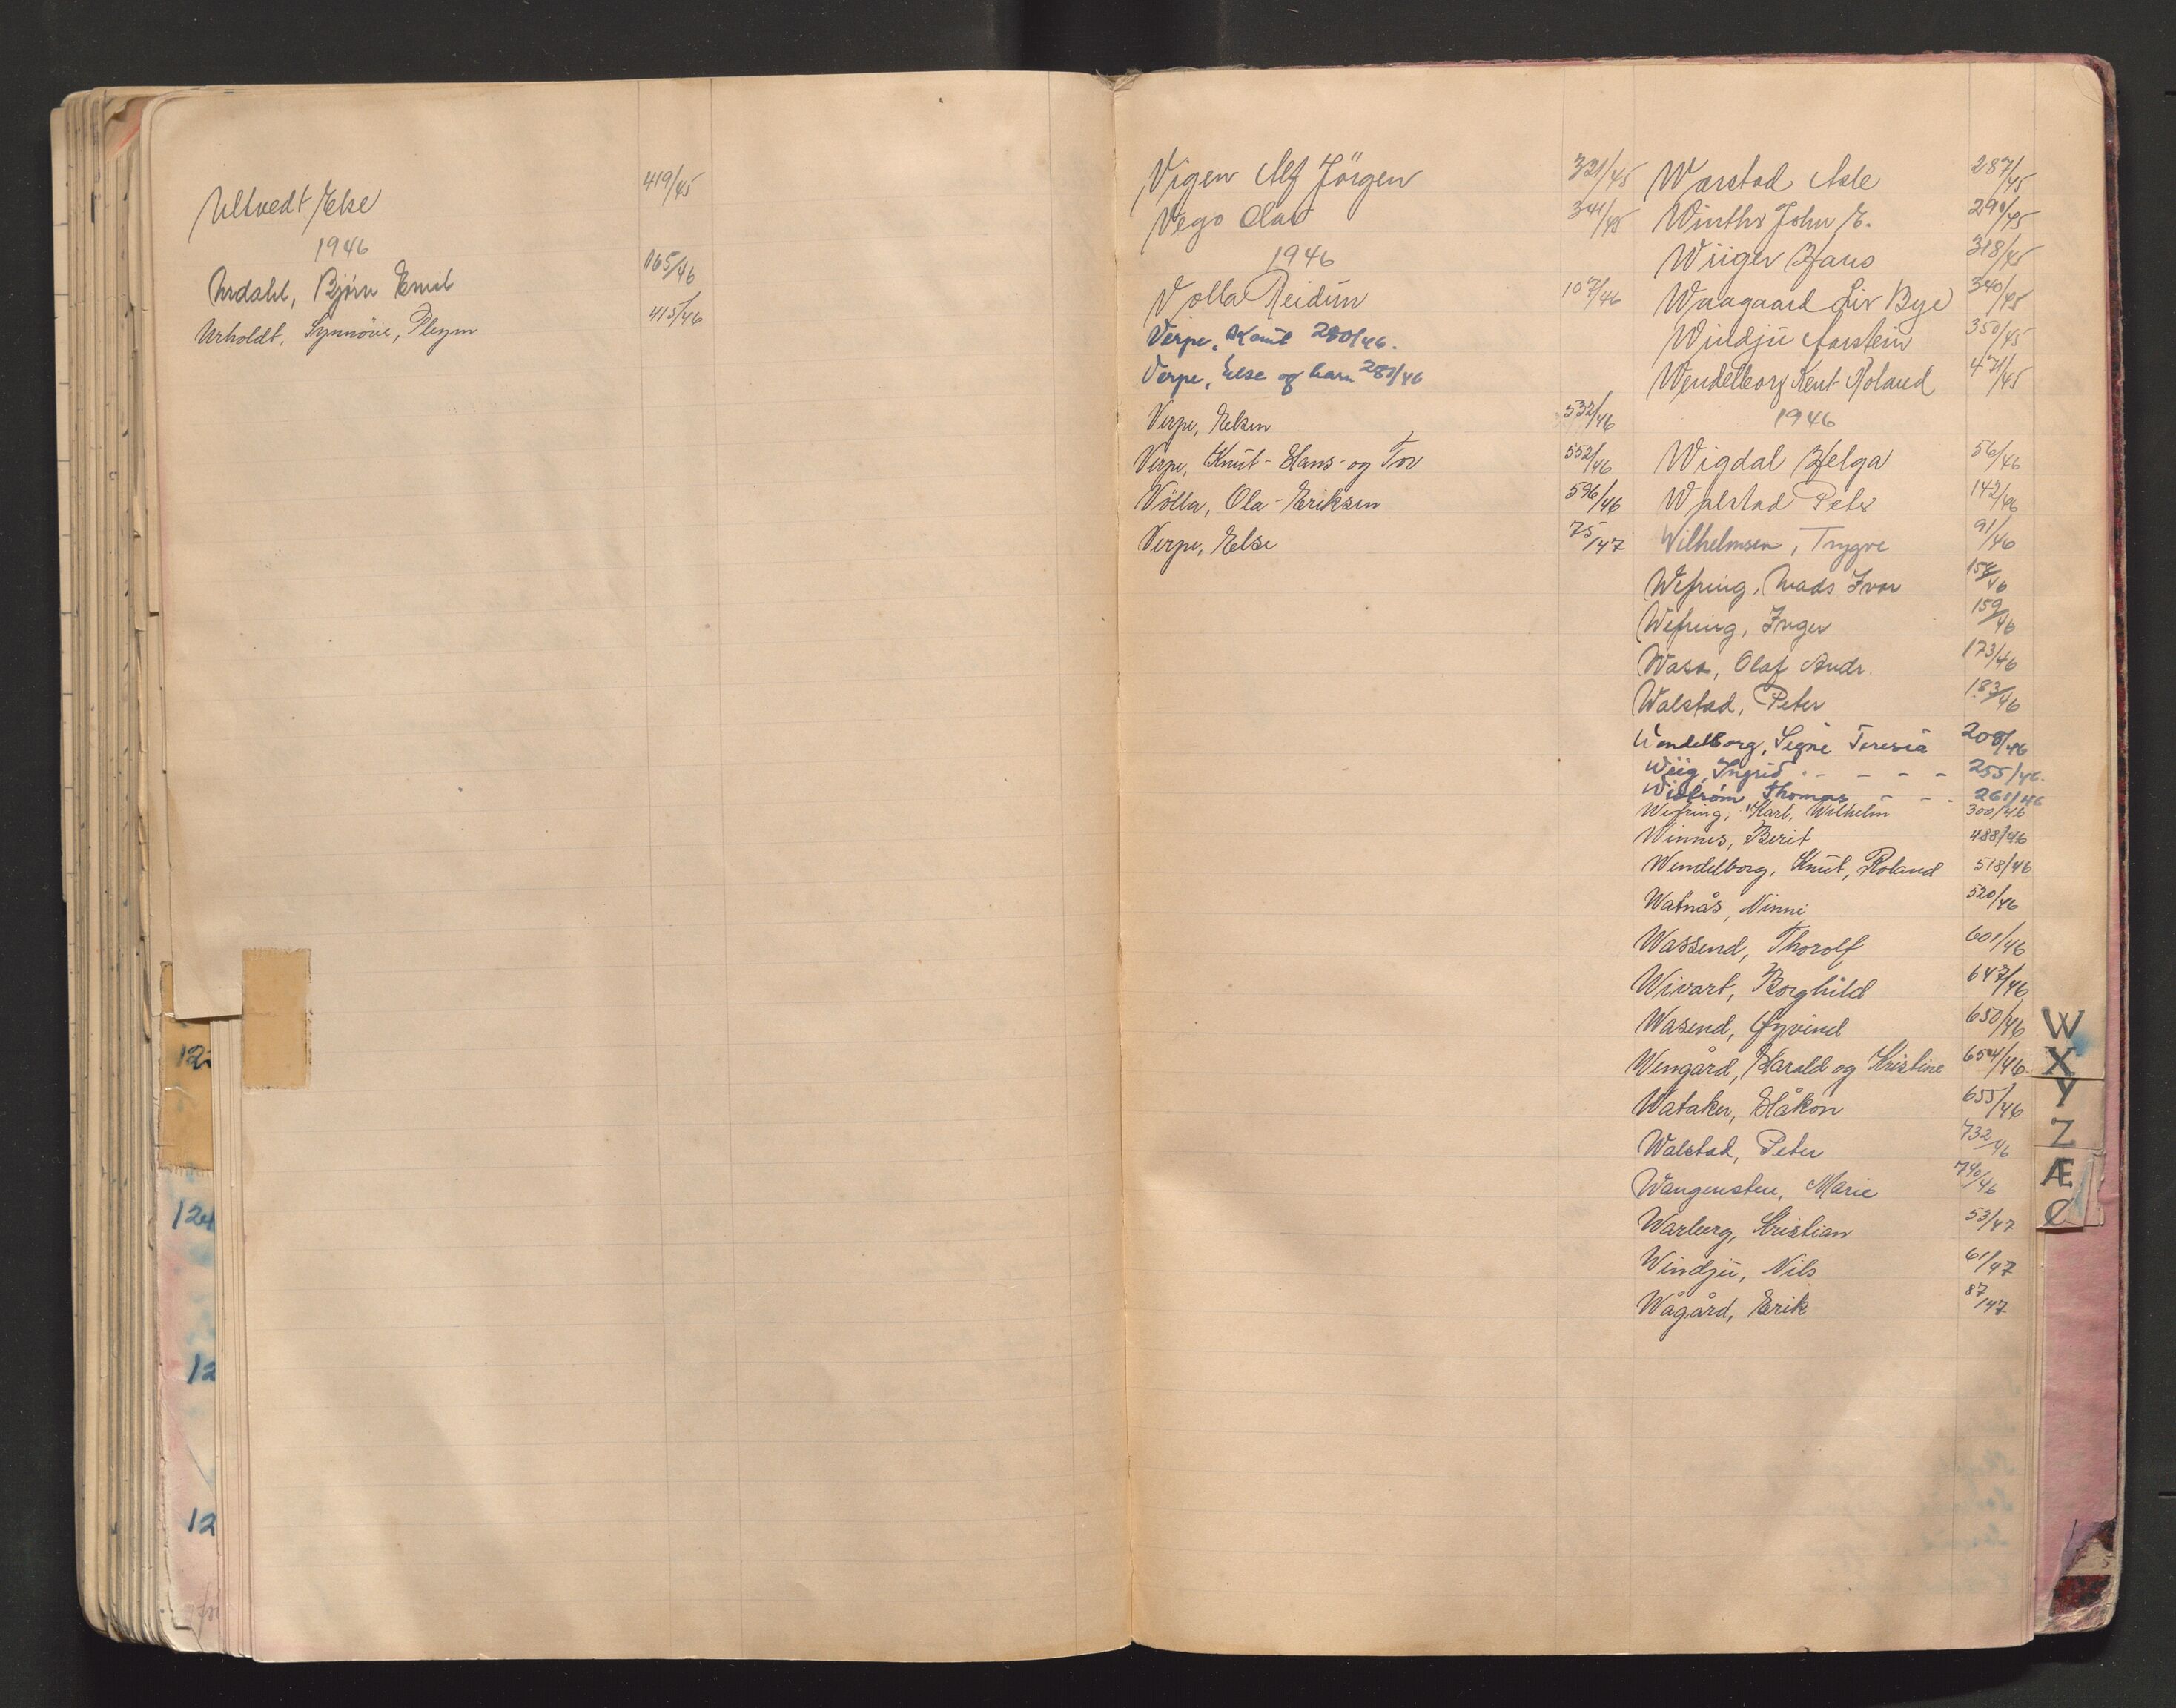 Ultvedt Else 419/45
1946
Urdahl, Bjørn Emil 165/46
Urholdt, Synnöve, Pleym 415/46
Vigen Alf Jörgen 321/45
Vego Olav 341/45
1946
Volla Reidun 107/46
Verpe, Knut 280/46.
Verpe, Else og barn 281/46
Verpe, Elsen 532/46
Verpe, Knut-Hans-og Tov 552/46
Völla, Ola-Eriksen 596/46
Verpe, Else 75/47
Warstad Asle 287/45
Winther John E. 290/45
Wiiger Hans 318/45
Waagaard Liv Bye 340/45
Windju Aarstein 350/45
Wendelborg Kent Roland 471/45
1946
Wigdal Helga 56/46
Walstad Peter 142/46
Wilhelmsen, Trygve 91/46
Wefring, Mads Ivar 158/46
Wefring, Inger 159/46
Wasa, Olaf Andr. 173/46
Walstad, Peter 183/46
Wendelborg, Signe Teresia 208/46
Wiig, Ingrid - - - - 255/46.
Wistrøm Thomas - - - 261/46
Wefring, Karl, Wilhelm 300/46
Winnes, Berit 488/46
Wendelborg, Knut, Roland 518/46
Watnås, Ninni 520/46
Wassend, Thorolf 601/46
Wivart, Borghild 647/46
Wasend, Øyvind 650/46
Wengård, Harald og Kristine 654/46.
Wataker, Håkon 655/46
Walstad, Peter 732/46
Wangensten, Marie 740/46
Warberg, Kristian 53/47
Windju, Nils 61/47
Wågård, Erik 87/47
W
X
Y
Z
Æ
Ø
12
124
12
12